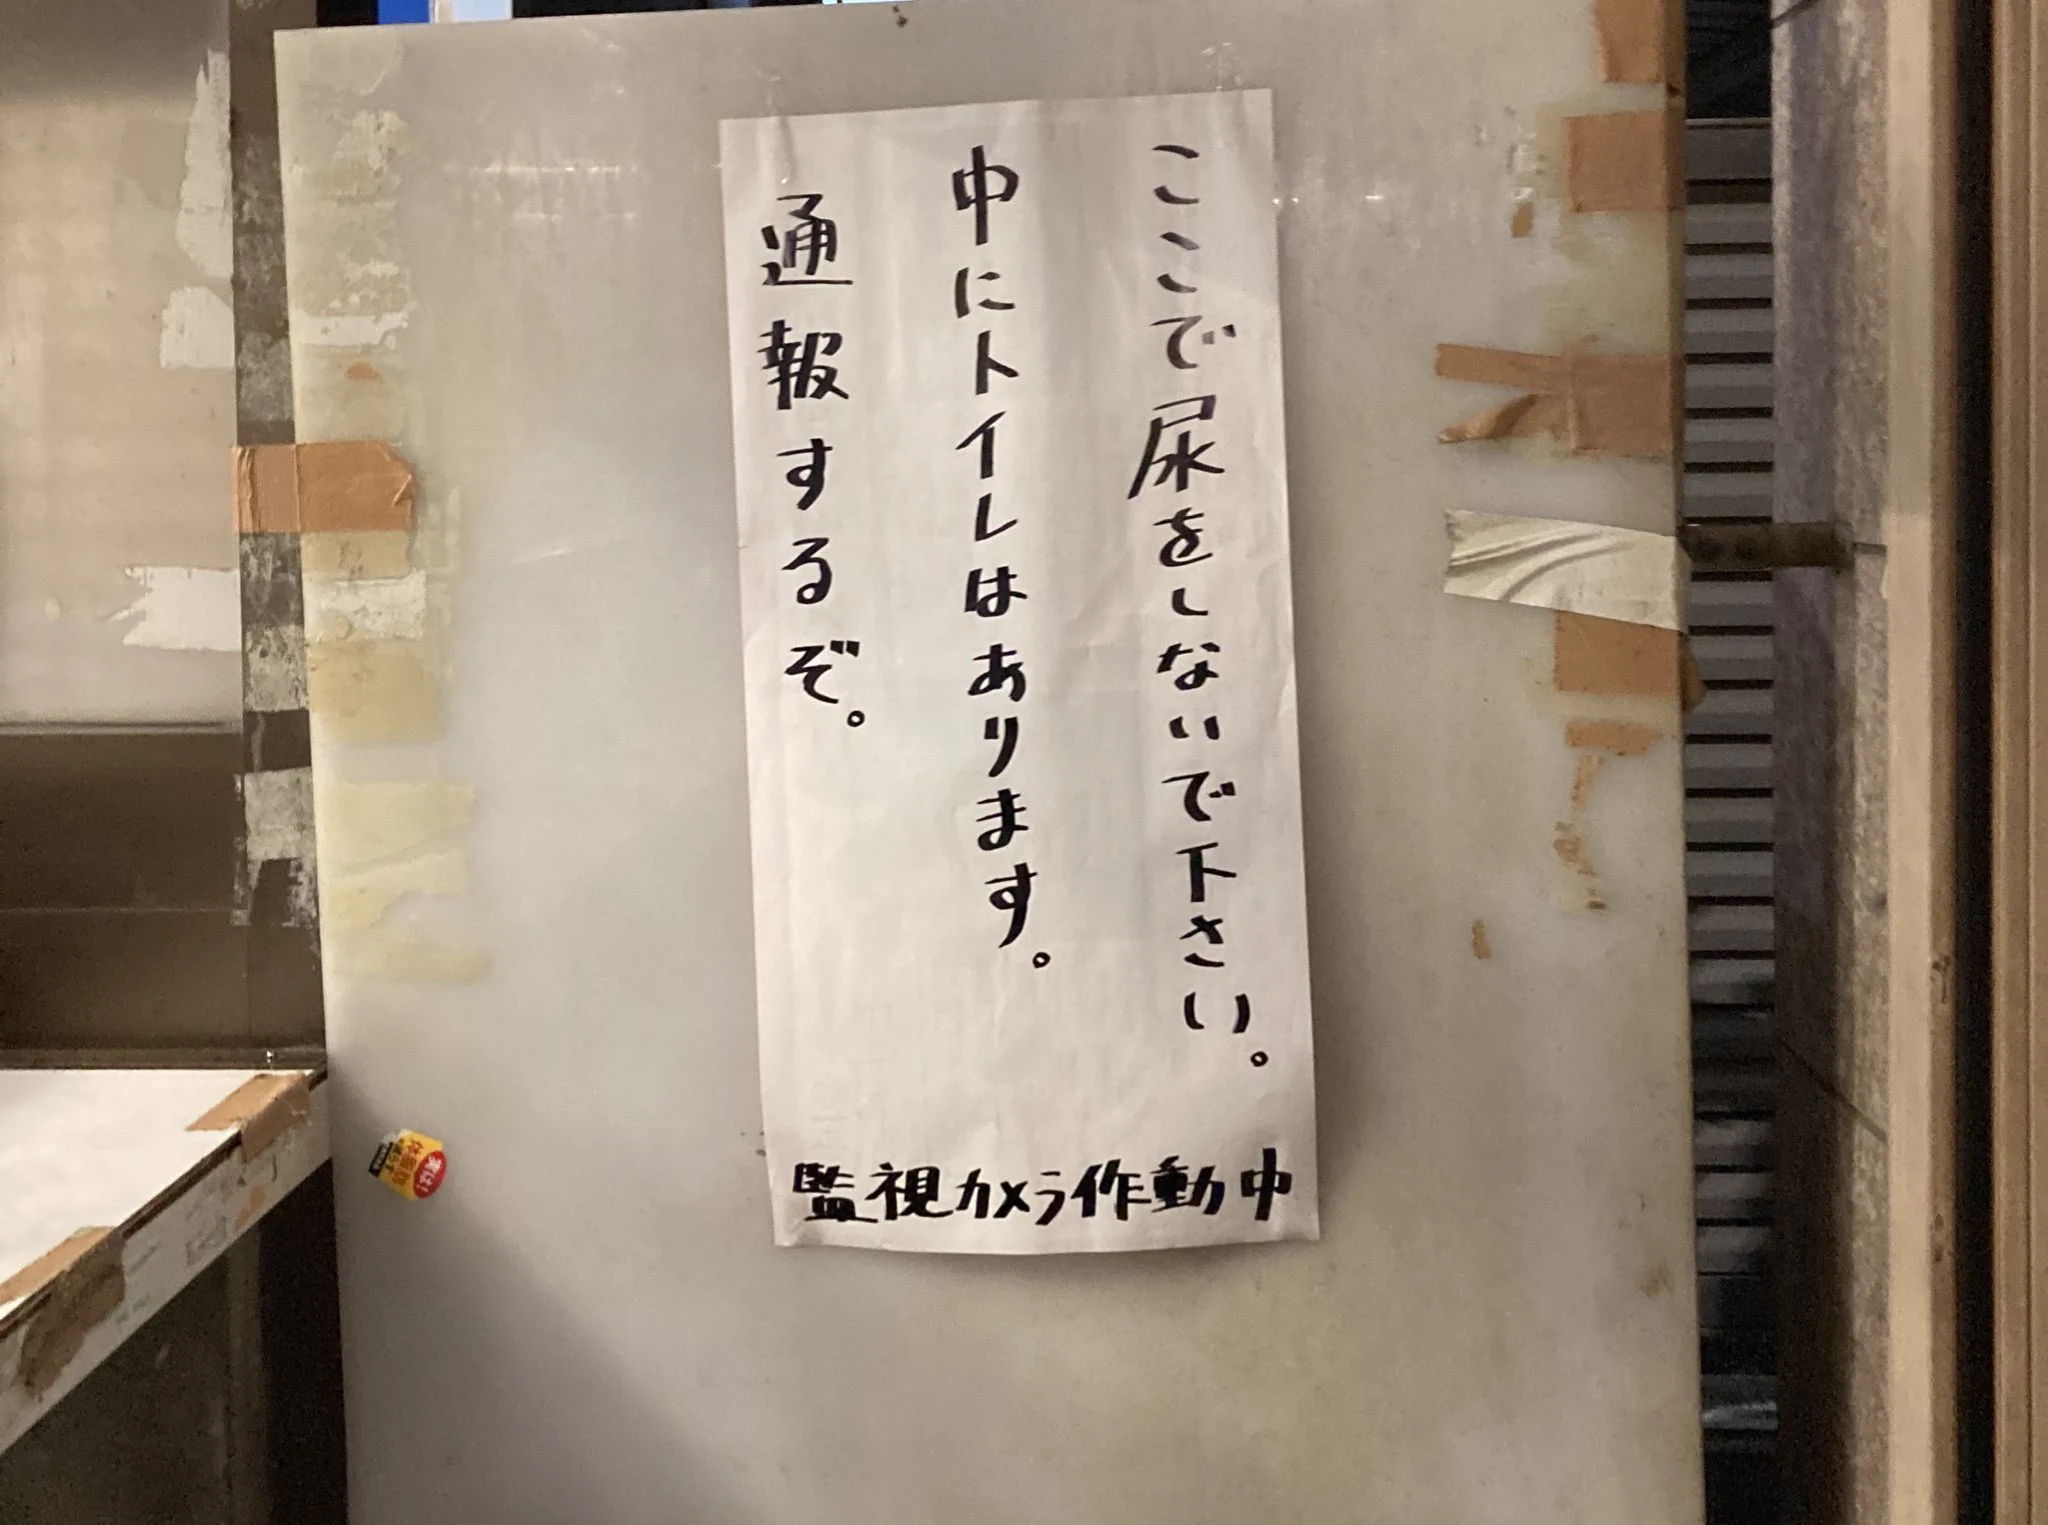 ここで尿をしないで下さい。
中にトイレはあります。
通報するぞ。
監視カメラ作動中
実は!